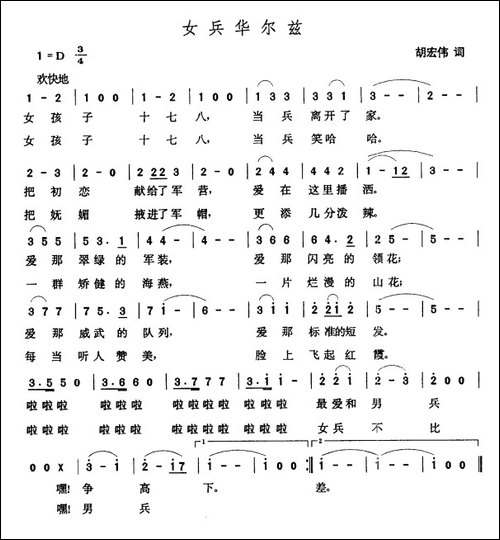 女兵华尔兹
1=D 3/4 胡宏伟 词
欢快地
1 - 2 | 1 0 0 | 1 - 2 | 1 0 0 | 1 3 3 | 3 3 1 | 3 - - | 2 - - |
女孩子 十七八, 当兵离开了家。
女孩子 十七八, 当兵笑哈哈。
2 - 3 | 2 - 0 | 2 2 2 3 | 2 - 0 | 2 4 4 | 4 4 2 | 1 - 1 2 | 3 - - |
把初恋 献给了军营, 爱在这里播洒。
把妩媚 掖进了军帽, 更添几分泼辣。
3 5 5 | 5 3 · 1 | 4 4 - | 4 - - | 3 6 6 | 6 4 · 2 | 5 - - | 5 - - |
爱那翠绿的军装, 爱那闪亮的领花;
一群矫健的海燕, 一片烂漫的山花;
3 7 7 | 7 5 · 3 | 7 6 - | 6 - - | 3 i i | 2 2 i 2 | i - - | i - - |
爱那威武的队列, 爱那标准的短发。
每当听人赞美, 脸上飞起红霞。
3 · 5 5 0 | 3 · 6 6 0 | 3 · 7 7 7 | 3 · i i - | 2 2 i | 2 - 3 | 2 0 0 |
啦啦啦 啦啦啦 啦啦啦啦 啦啦啦啦 最爱和男兵
啦啦啦 啦啦啦 啦啦啦啦 啦啦啦啦 女兵不比
0 0 X | 3 - i | 2 - i 7 | i - - | i - 0 :| i - - | i - 0 ‖
嘿! 争高下。 差。
嘿! 男兵